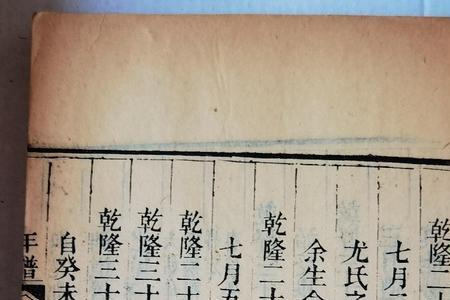 乾隆二
七月
尤氏之
余生
乾隆二十
七月五
乾隆二十
乾隆三十
乾隆三十
自癸未
年譜